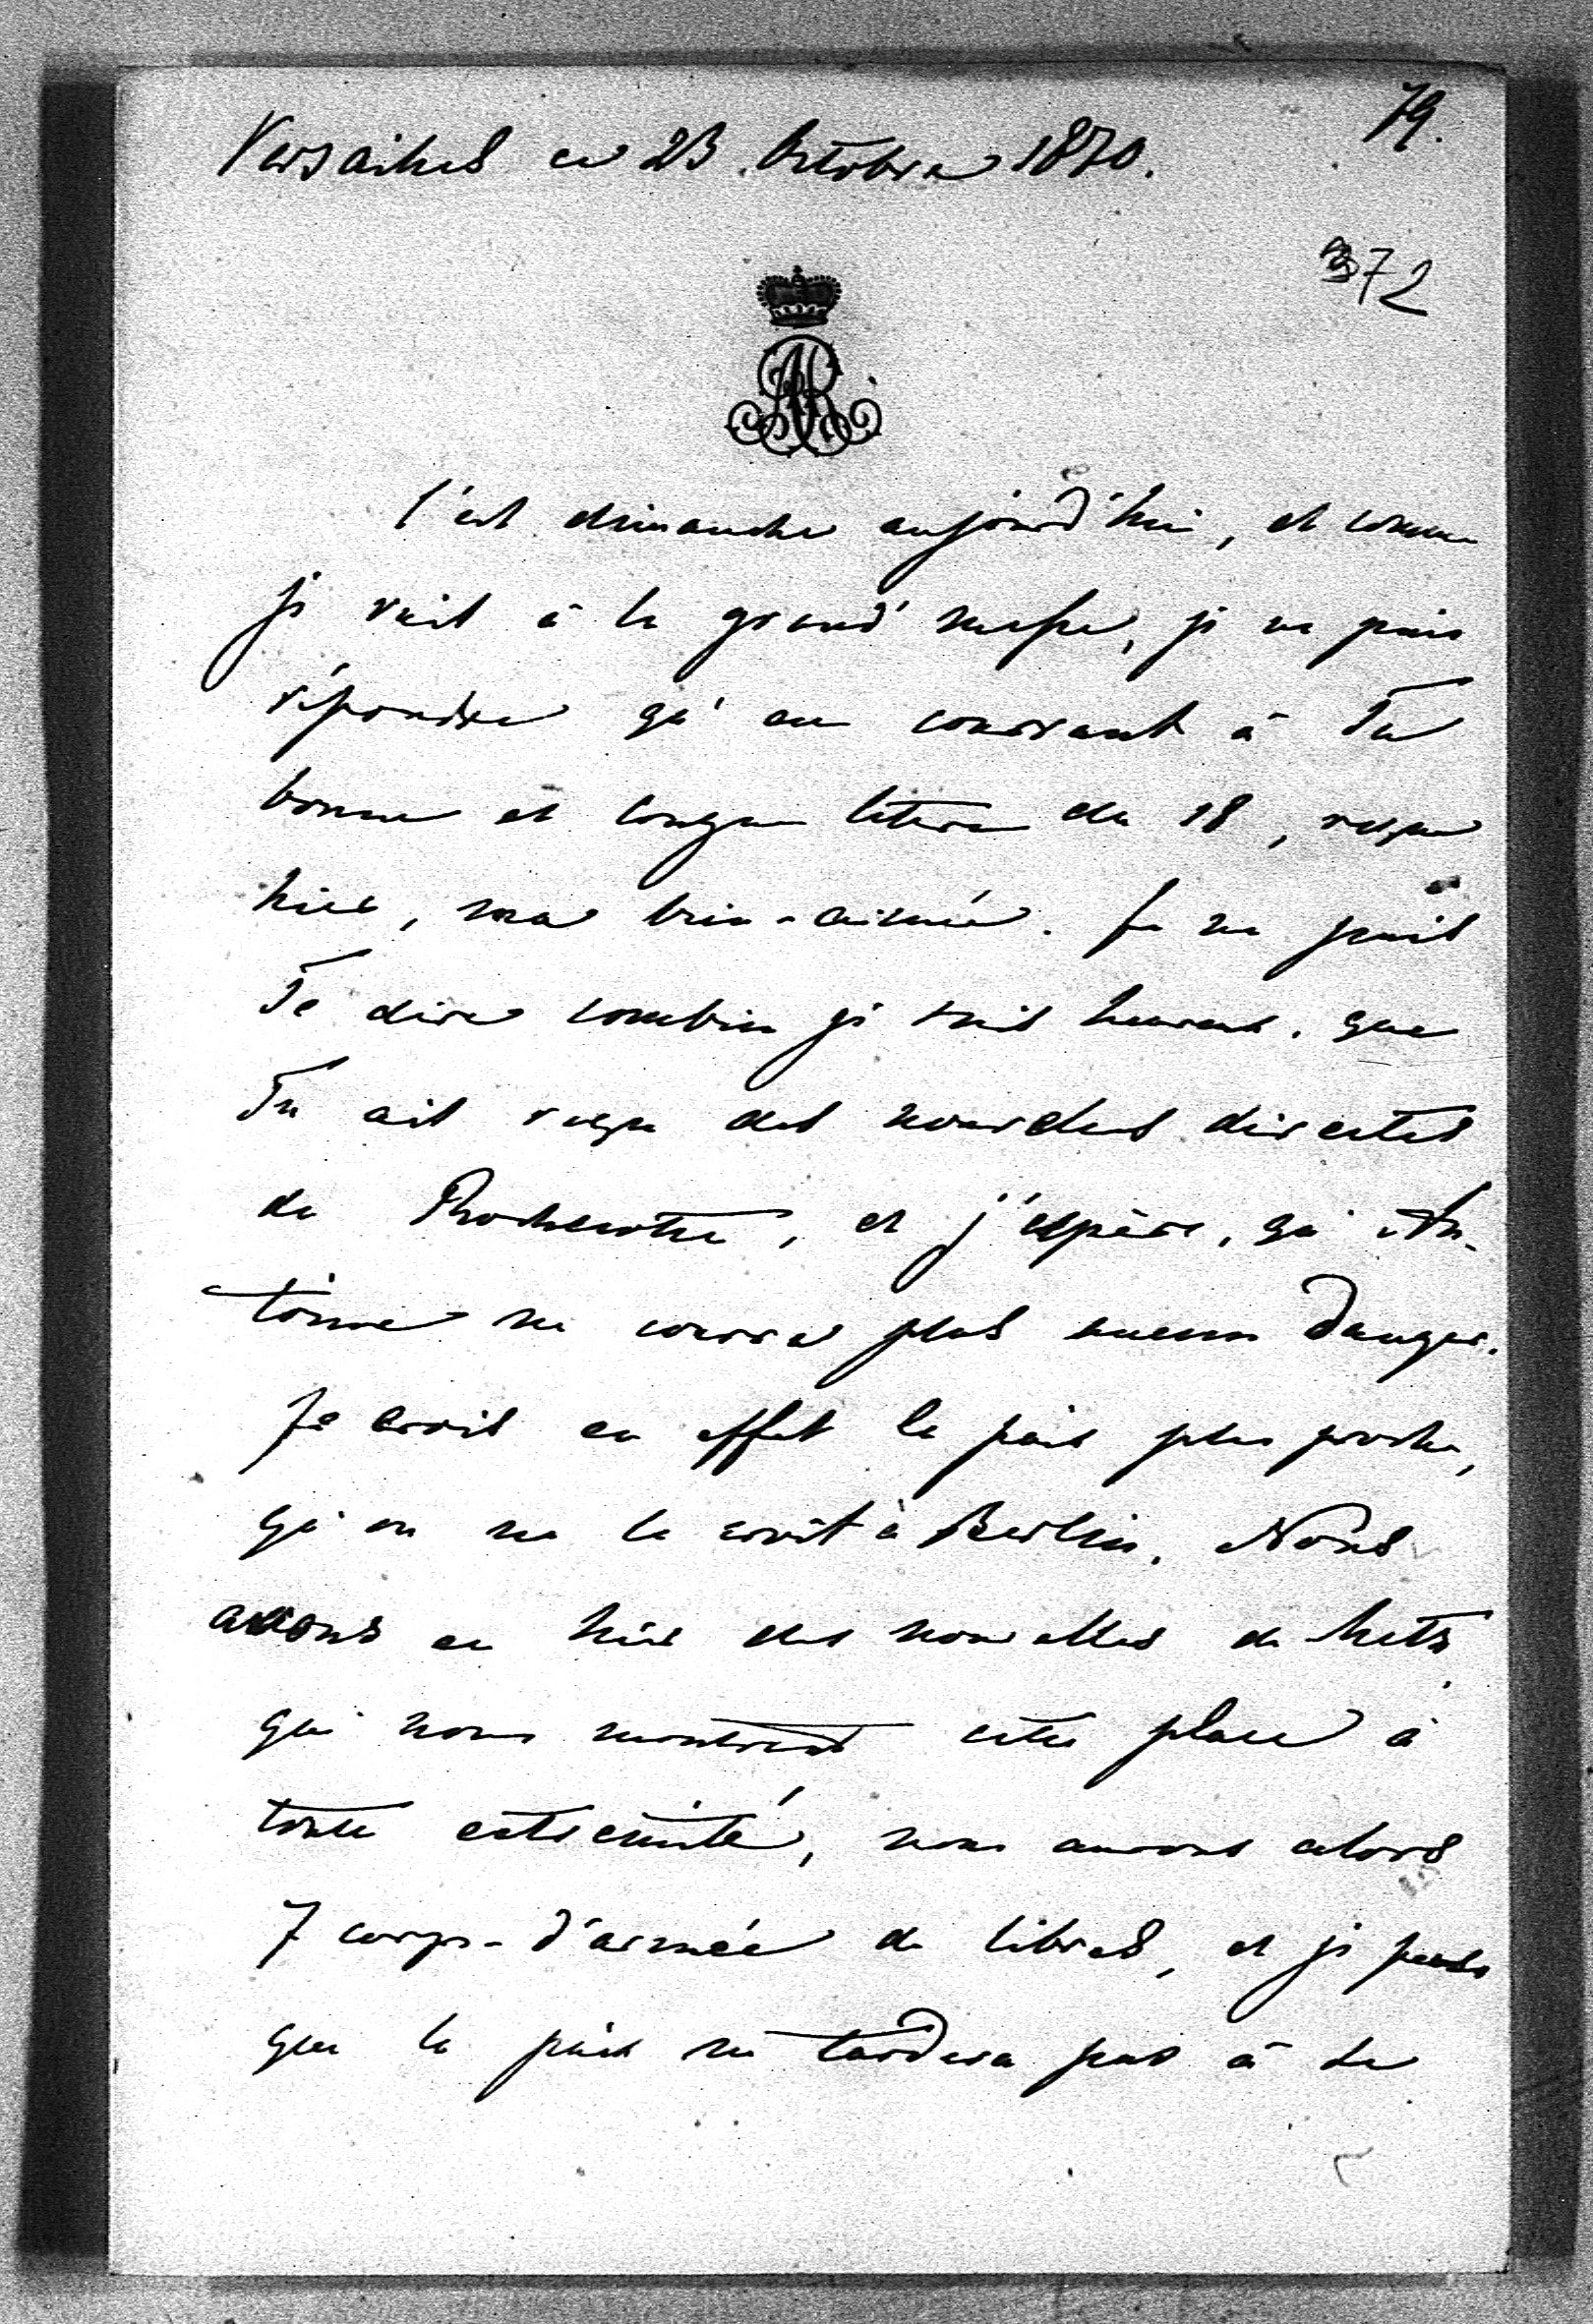 79.
Versailles ce 23 Octobre 1870.
372
AR
C'est dimanche aujourd'hui, et comme
je vais à la grand' messe, je ne puis
répondre qu'en courrant à Ta
bonne et longue lettre du 18, reçue
hier, ma bien-aimée. Je ne puis
Te dire combien je suis heureux, que
Tu ais reçu des nouvelles directes
de Rochecotte, et j'espère, qu'An-
toine ne courra plus aucun danger.
Je crois en effet la paix plus proche,
qu'on ne le croit à Berlin. Nous
avons eu hier des nouvelles de Metz,
qui nous montrent cette place à
toute extrémité, nous aurons alors
7 corps-d'armée de libres, et je pense
que la paix ne tardera pas à se